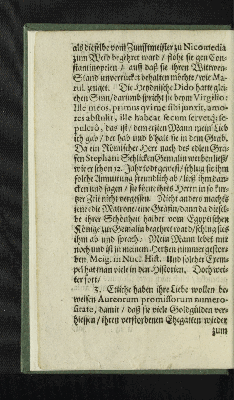 als dieselbe vom Zunfftmeister zu Nicomedia
zum Weib begehret ward / flohe sie gen Con-
stantinopten / auff daß sie ihren Wittwen-
Stand unverruckt behalten möchte / wie Ma-
rul. zeuget. Die Heydnische Dido hatte glei-
chen Sinn / darumb spricht sie beym Virgilio:
Ille meos, primus qvi me sibi junxit, amo-
res abstulit, ille habeat secum servetq; se-
pulcrô, das ist: dem ersten Mann zu dem Lieb
ich gab / der hab und b'halt sie in dem Grab.
Da ein Römischer Herr nach des edlen Gra-
fen Stephani Schlicken Gemalin werben ließ /
wie er schon 12. Jahr todt gewest / schlug sie ihm
solche Anmutung freundlich ab / ließ ihm dan-
cken und sagen / sie könte ihres Herrn in so kur-
tzer Zeit nicht vergessen. Nicht anders machts
jene edle Matrone / eine Gräfin / dann da diesel-
be ihrer Schönheit halber vom Egyptischen
Könige zur Gemalin begehret ward / schlug sies
ihm ab und sprach: Mein Mann lebet mir
noch und ist in meinem Hertzen nimmer gestor-
ben. Meig. in Nucl. Hist. Und solcher Exem-
pel hat man viele in den Historien. Doch wei-
ter fort /
3. Etliche haben ihre Liebe wollen be-
weisen Aureorum promissorum numero-
sitate, damit / daß sie viele Goldgülden ver-
hiessen / ihren verstorbenen Ehegatten wieder
zum